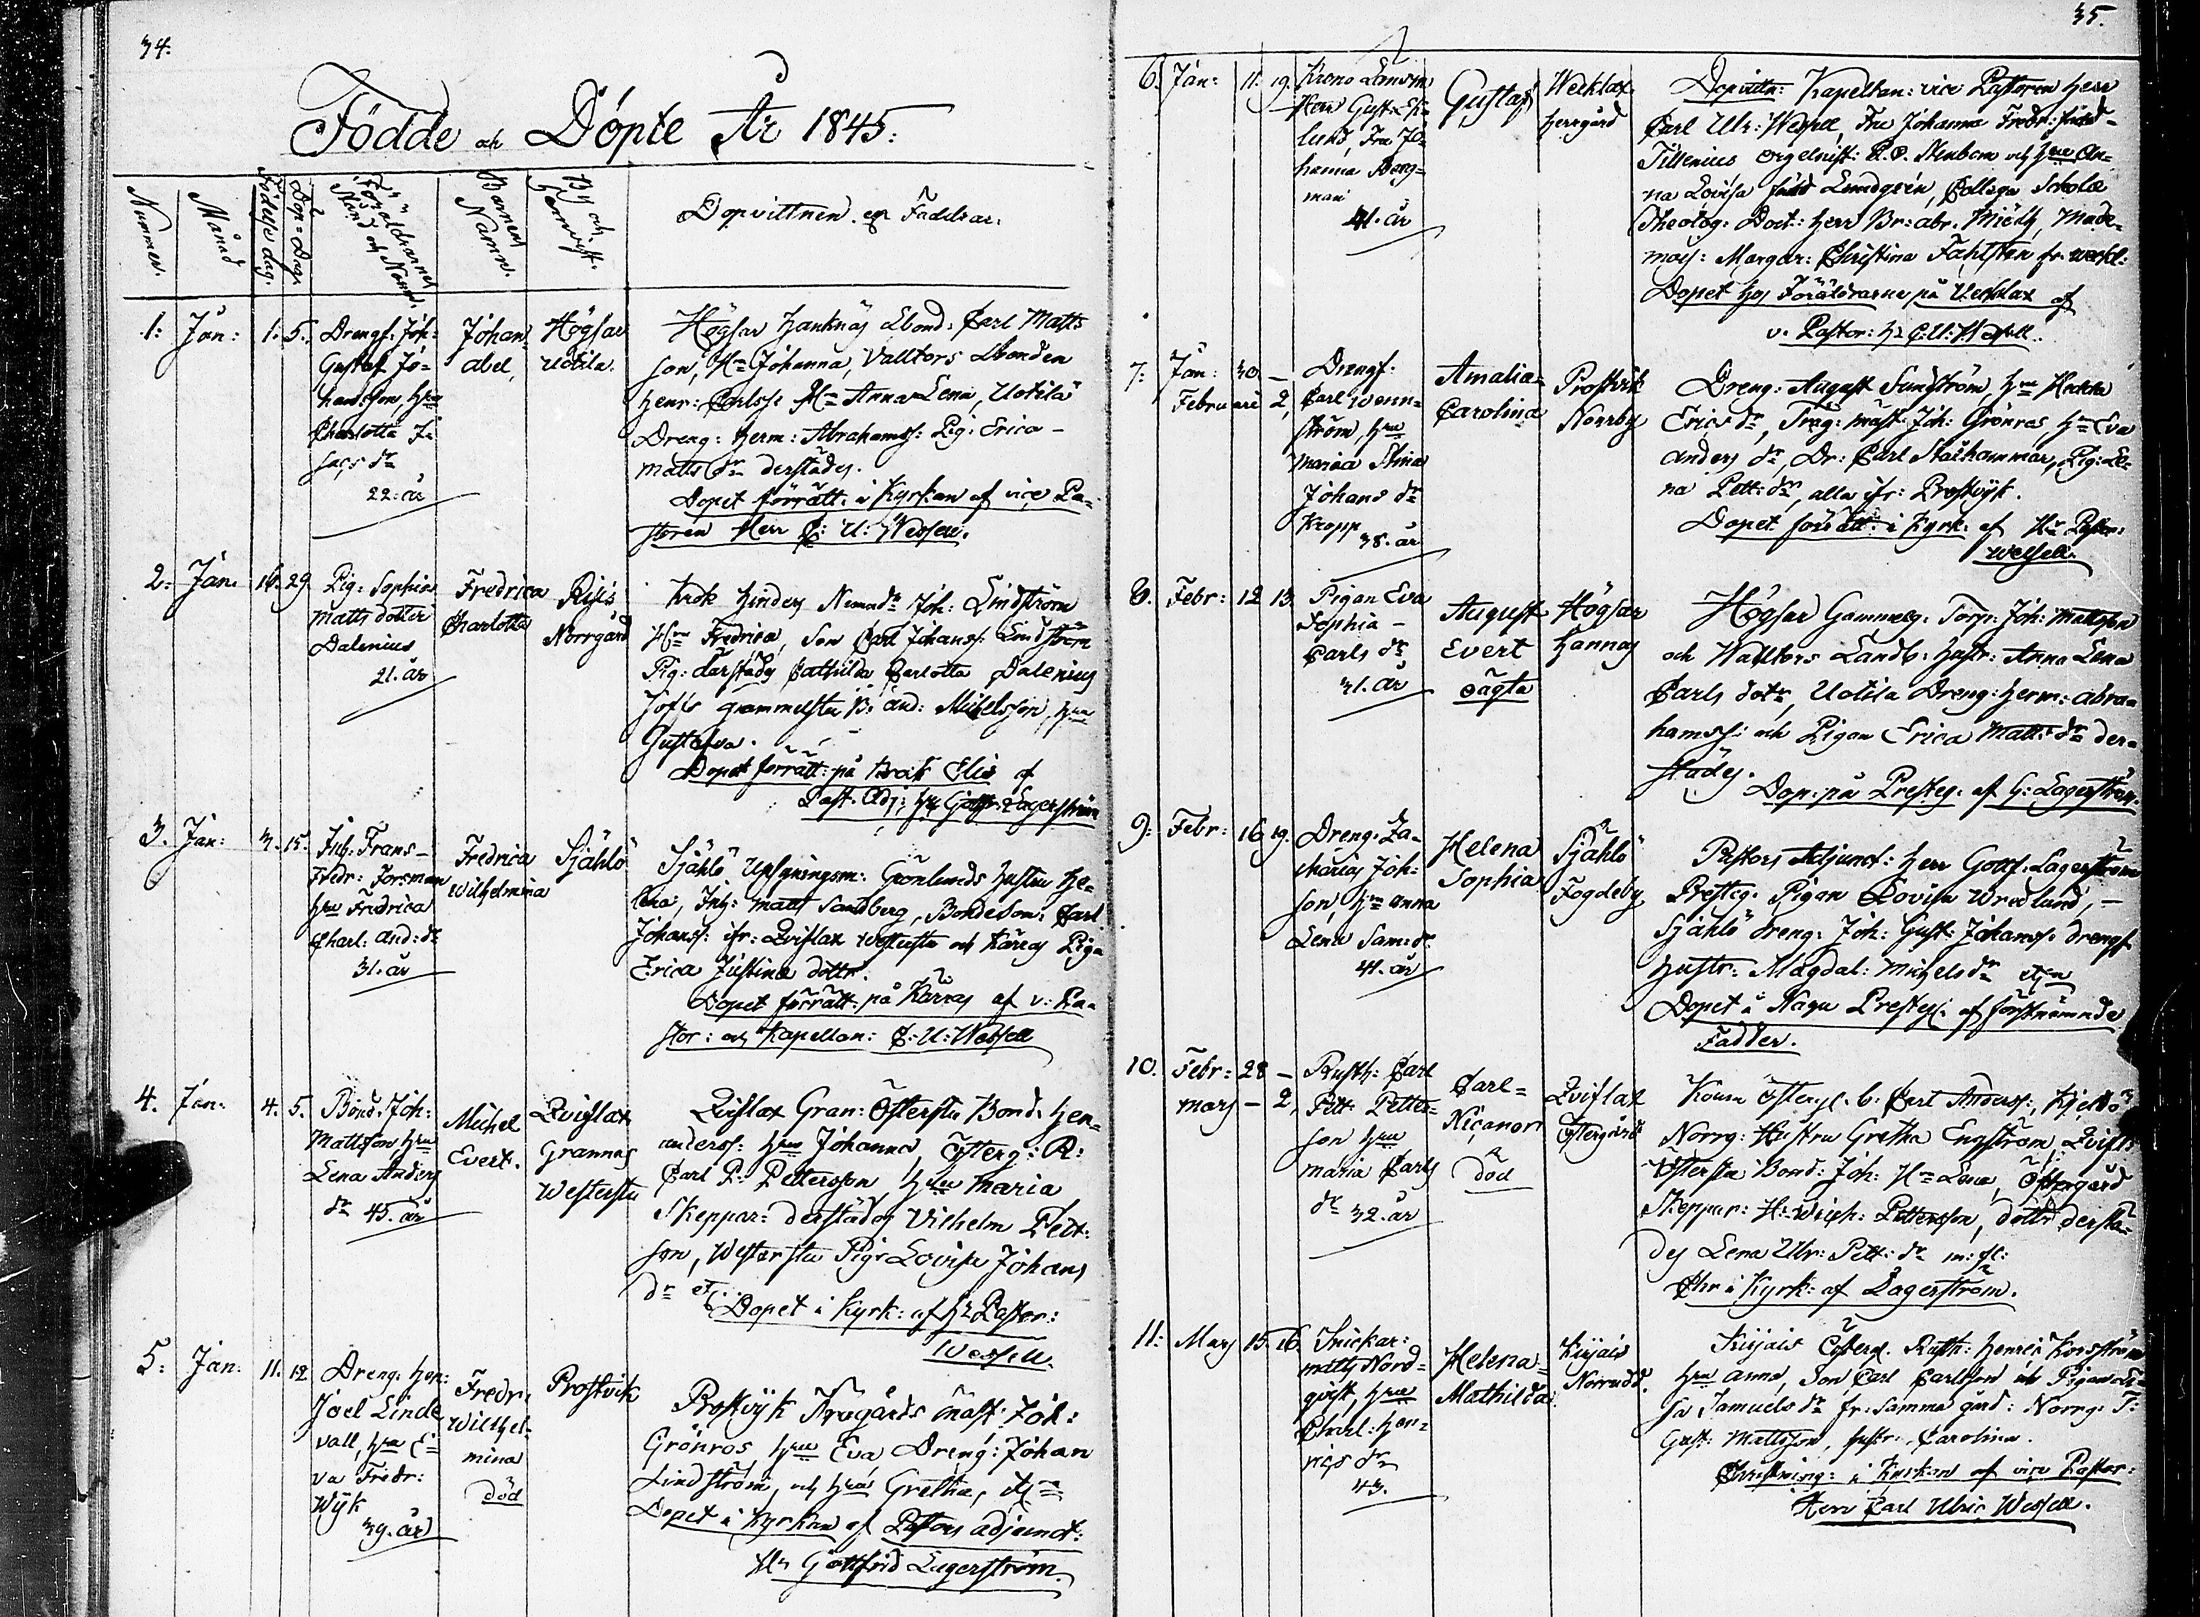 34.
Födde och Döpte År 1845.
Nummer.
Månad
Födelse dag.
Dop=Dag.
Föräldrarnes Stånd och Namn.
Barnens Namn.
By och Hemvist.
Dopvittnen och Faddrar.
1: Jan: 1. 5.
Drengs: Joh:
Gustaf Jo=
hansson, Hru
Charlotta I=
sacs dr
22. år
Johan
Abel,
Högsar
Uotila.
Högsar Hanknäs Lbond: Carl Matts
son, Hu Johanna, Valltors Lbonden
Henr: Carlss: Hu Anna Lena, Uotila
Dreng: Herm: Abrahamss: Pig: Erica
Matts dr derstädes.
Dopet förrätt: i Kyrkan af vice Pa=
storen Herr C: U: Wessell.
2: Jan: 16. 29.
Pig: Sophia
Matts dotter
Dalenius
21. år
Fredrica
Charlotta
Norrgård
Joh: Lindström
Hru Fredrica, Son Carl Johanss: Lindström
Pig: darstädes Mathilda Carlotta Dalenius
And: Michelsson, Hru
Gustafva.
Dopet förrätt: på
Past. Adj: Hr Gottfr: Lagerström
3. Jan: 3. 15.
Inh: Frans
Fredr: Forsman
Hru Fredrica
Charl: And: dr
31. år
Fredrica
Wilhelmina
Själö
Själö Uppsyningsm: Grönlunds Hustru He=
lena, Inh: Matts Sandberg, Bondeson: Carl
Johanss: ifr: Qvislax och Kärras Piga
Erica Justina dottr.
Dopet förrätt: på Kärras af v: Pa=
stor: och Kapellan: C: U: Wessell
4. Jan: 4. 5.
Bond: Joh:
Mattsson Hru
Lena Anders
dr 45. år
Michel
Evert.
Qvislax
Grannas
Westerstu
Qvislax Gran: Österstu Bond: Hen=
Anderss: Hru Johanna, Österg: R:
Carl P: Pettersson, Hru Maria
Skeppar: derstädes Vilhelm Pett:
son, Westerstu Pig: Lovisa Johans
dr etc.
Dopet i Kyrk: af Hr Pastor:
Wessell.
5: Jan: 11. 12
Dreng: Hen:
Joel Linde
vall, Hru E=
va Fredr:
Wijk
39. år
Fredr:
Wilhel=
mina
död
Prostvik
Prostvijk Trägårds mäst: Joh:
Grönros Hru Eva, Dreng: Johan
Lindström, och Hru Gretha, etc
Dopet i Kyrkan af Pastors Adjunct:
Hr Gottfrid Lagerström.
35.
6. Jan: 11. 19.
Krono Länsm
Herr Gust: Ek=
lund, Fru Jo=
hanna Berg=
man
41. år
Gustaf
Wecklax
Herrgård
Dopvittn: Kapellan: vice Pastoren Herr
Carl Ulr: Wessell, Fru Johanna Fredr: född
Tillenius Orgelnist: och Hru An=
na Lovisa född Lundgren, Collega Scholæ
Theolog: Doct: Herr Br: Abr. Mmade=
mois: Margar: Christina Fahlsten fr: Weckl:
Dopet hos Föräldrarne på Wecklax af
v. Pastor: Hr C: U: Wessell.
7: Jan: 30 –
Februari 2,
Drengs:
Carl Wenn=
ström, Hru
Maria Stina
Johans dr
Kropp
38. år
Amalia=
Carolina
Prostvik
Norrby
Dreng: August Sundström, Hru Hedda
Erics dr, Träg: mäst: Joh: Grönros, Hu Eva
Anders dr, Dr: Carl Stålhammar, Pig: Le=
na Pett: dr, alla ifr: Prostvijk.
Dopet förrätt: i Kyrk: af Hr Pastor:
Wessell.
8. Febr: 12 13
Pigan Eva
Sophia
Carls dr
31. år
August
Evert
oägta
Högsar
Hannas
Högsar Gammelg: Torp: Joh: Mattsson
och Walltors Landb: Hustr: Anna Lena
Carls dotr, Uotila Dreng: Herm: Abra=
hamss: och Pigan Erica Matts dr der=
städes.
Dop: på Presteg: af G: Lagerström.
9: Febr: 16 19.
Dreng: Za=
charias Joh:
son, Hru Anna
Lena Sam: dr
41. år
Helena
Sophia
Själö
Fogdeby
Pastors Adjunct: Herr Gottf: Lagerström
Presteg: Pigan Lovisa Wredlund,
Själö dreng: Joh: Gust: Johanss: drengs
hustr: Magdal: Michels dr etc
Dopet i Nagu Presteg: af förstnämnde
Fadder.
10. Febr: 28 –
Mars – 2,
Rusth: Carl
Pett: Petters=
son Hru
Maria Carls
dr 32. år
Carl=
Nicanor
död
Qvislax
Östergård
Österg: b: Carl Anderss:,
Norrg: Hustru Gretha Engström, Qvisl:
Österstu Bond: Joh: Hu Lena, Östergård
Skeppar: H: Wilh: Pettersson, dottr derstä=
des Lena Ulr: Pett: dr m: fl:
Chr: i Kyrk: af Lagerström.
11: Mars 15. 16.
Snickar:
Matts Nord=
qvist, Hru
Charl: Hen=
rics dr
43.
Helena=
Mathilda.
Kirjais
Norrudd.
Kirjais Österg: Rusth: Henric Korsström
Hru Anna, Son Carl Carlsson och Pigan
Samuels dr fr: samma gård: Norrg: T:
Gust: Mattsson, hustr: Carolina.
Christning: i Kyrkan af vice Pastor:
Herr Carl Ulric Wessell.